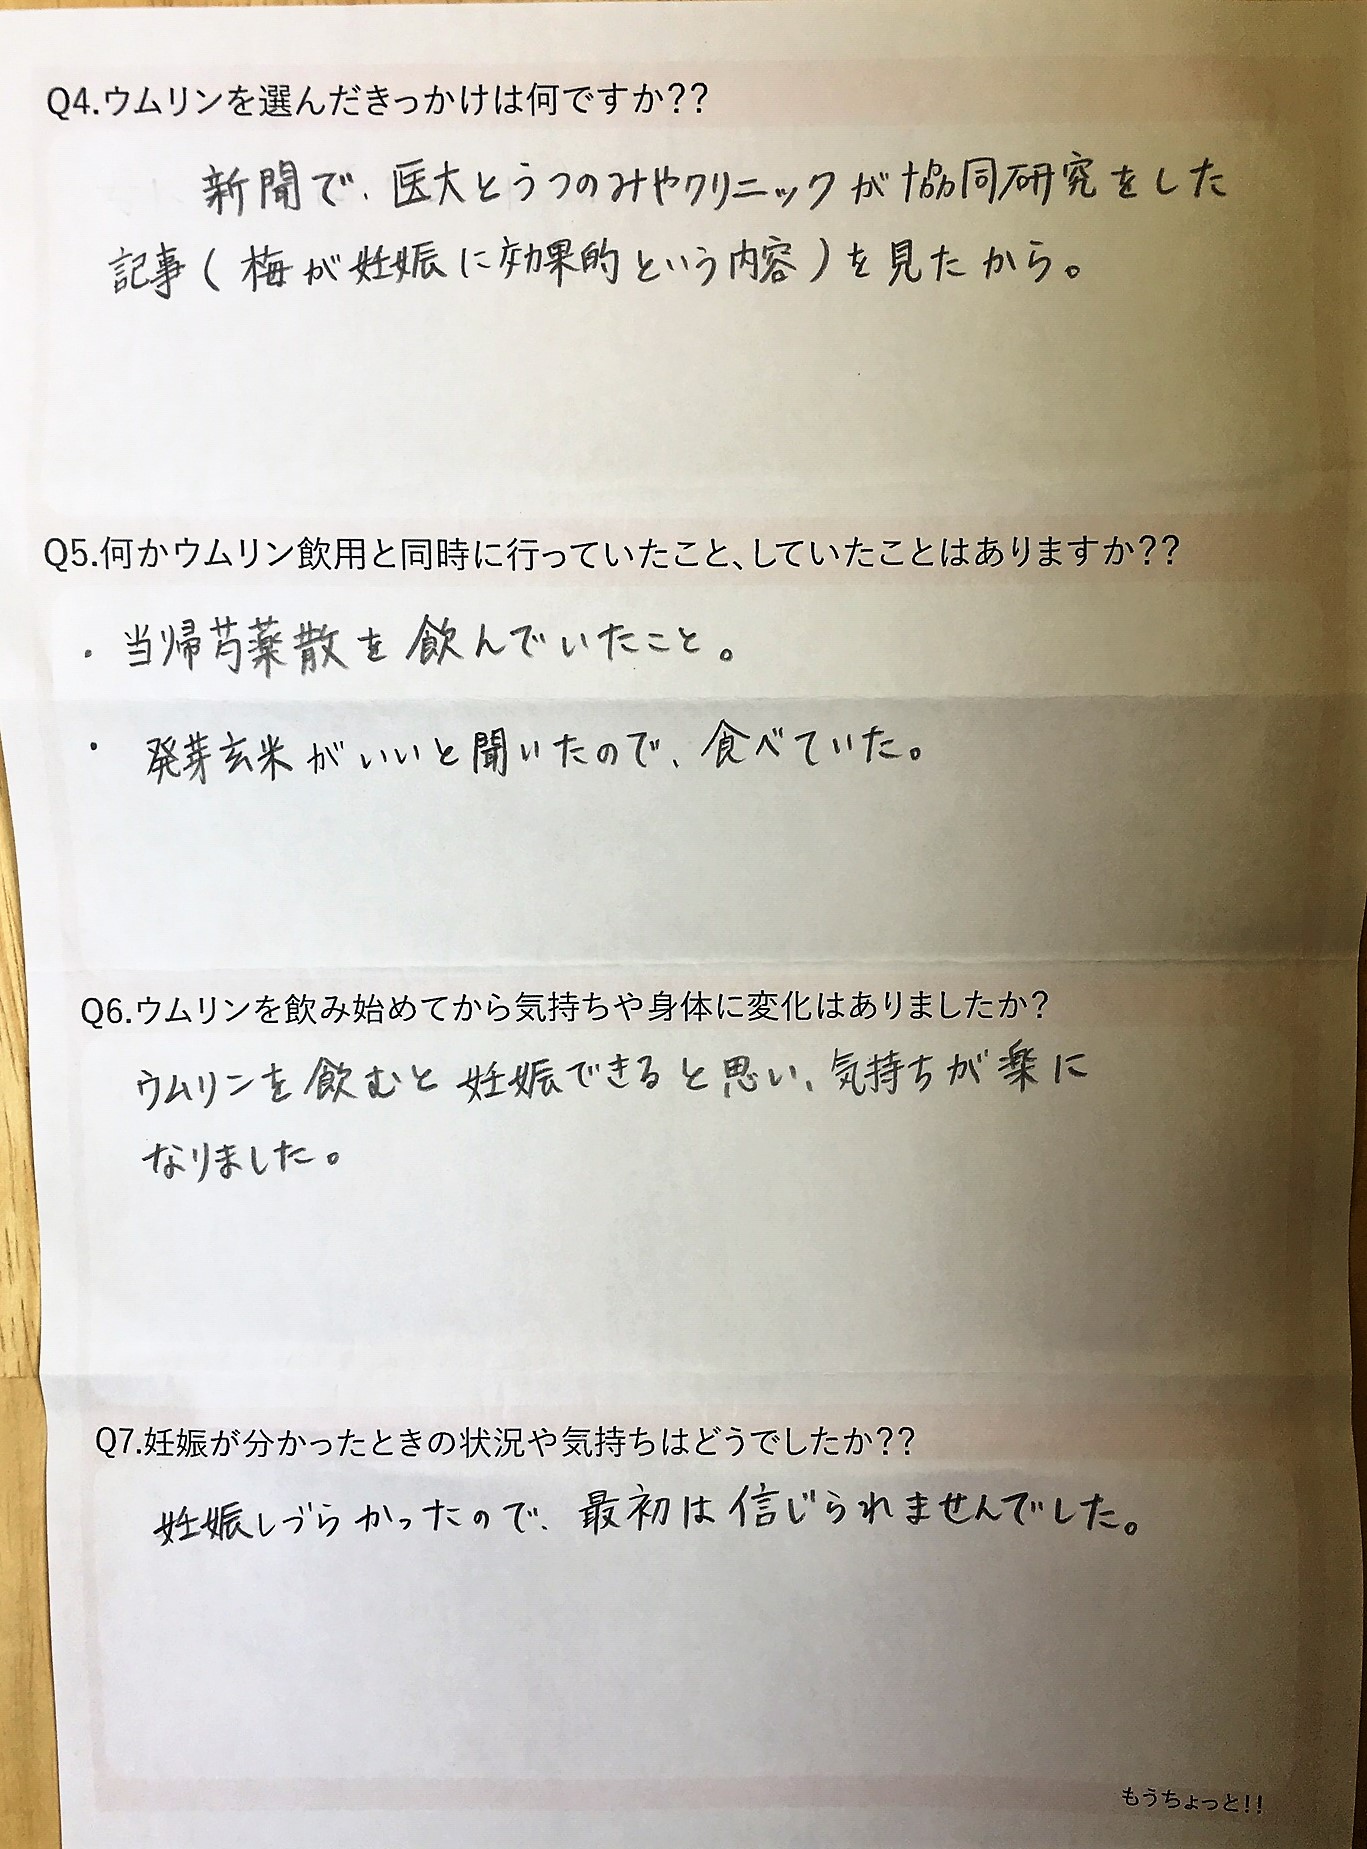 Q4.ウムリンを選んだきっかけは何ですか??
新聞で、医大とうつのみやクリニックが協同研究をした
記事(梅が妊娠に効果的という内容)を見たから。
Q5.何かウムリン飲用と同時に行っていたこと、していたことはありますか??
・当帰芍薬散を飲んでいたこと。
・発芽玄米がいいと聞いたので、食べていた。
Q6.ウムリンを飲み始めてから気持ちや身体に変化はありましたか?
ウムリンを飲むと妊娠できると思い、気持ちが楽に
なりました。
Q7.妊娠が分かったときの状況や気持ちはどうでしたか??
妊娠しづらかったので、最初は信じられませんでした。
もうちょっと!!